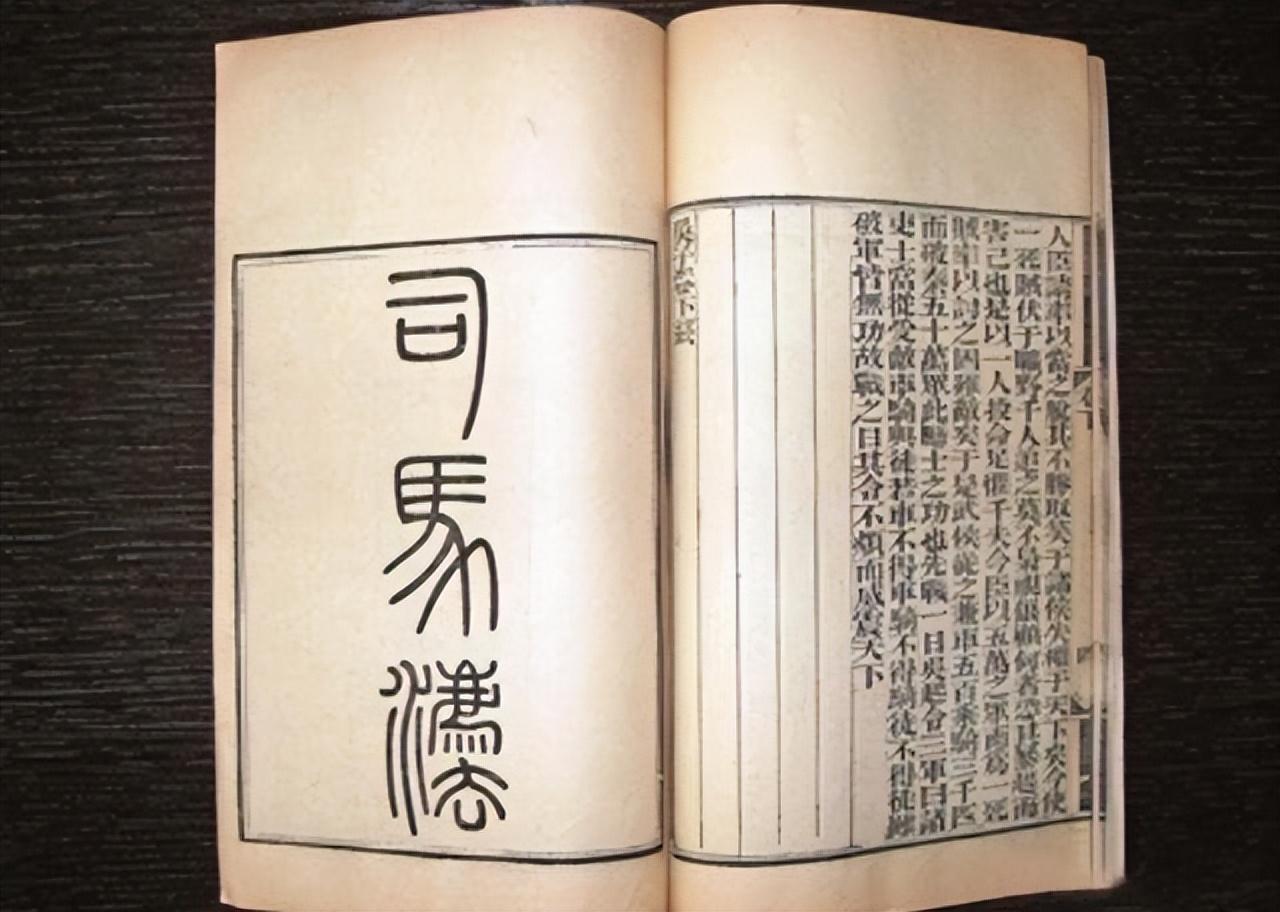 人臣請率以當之脫其不勝取笑于諸侯失權于天下矣今使
一死賊伏于曠野千人追之莫不梟視狼顧何者恐其暴起而
害己也是以一人投命足懼千夫今臣以五萬之眾而爲一死
賊率以討之固難敵矣于是武侯從之兼車五百乘騎三千匹
而破秦五十萬眾此勵士之功也先戰一日吳起令三軍曰諸
吏士當從受敵車騎與徒若車不得車騎不得騎徒不得徒雖
破軍皆無功故戰之日其令不煩而威震天下
吳子卷下
司馬灋